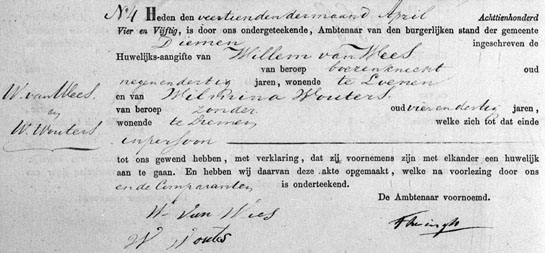 N°4 Heden den veertienden der maand April Achttienhonderd
Vier en Vijftig, is door ons ondergeteekende, Ambtenaar van den burgerlijken stand der gemeente
Diemen ingeschreven de
Huwelijks-aangifte van Willem van Wees
van beroep boerenknecht oud
negenendertig jaren, wonende te Loenen
en van Wilhelmina Wouters
van beroep zonder oud vier en dertig jaren,
wonende te Diemen welke zich tot dat einde
in persoon
tot ons gewend hebben, met verklaring, dat zij voornemens zijn met elkander een huwelijk
aan te gaan. En hebben wij daarvan deze akte opgemaakt, welke na voorlezing door ons
en de Comparanten is onderteekend.
De Ambtenaar voornoemd.
W. van Wees
en
W. Wouters
W van Wees
W Wouters